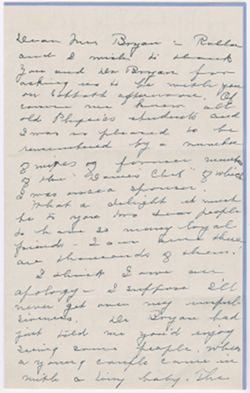 Dear Mrs Bryan – Rolla
and I wish to thank
you and Dr Bryan for
asking us to be with you
on afternoon. Of
course we knew all
old Physics students and
I was so pleased to be
remembered by a number
of wives of former members
of the "Club" of which
I was once a sponsor.
What a delight it must
be to you two dear people
to have so many loyal
friends – I am sure there
are thousands of them.
I think I owe an
apology – I suppose I'll
never get over my
Dr Bryan had
just told me you'd enjoy
seeing some people, when
a young couple came in
with a tiny baby. The